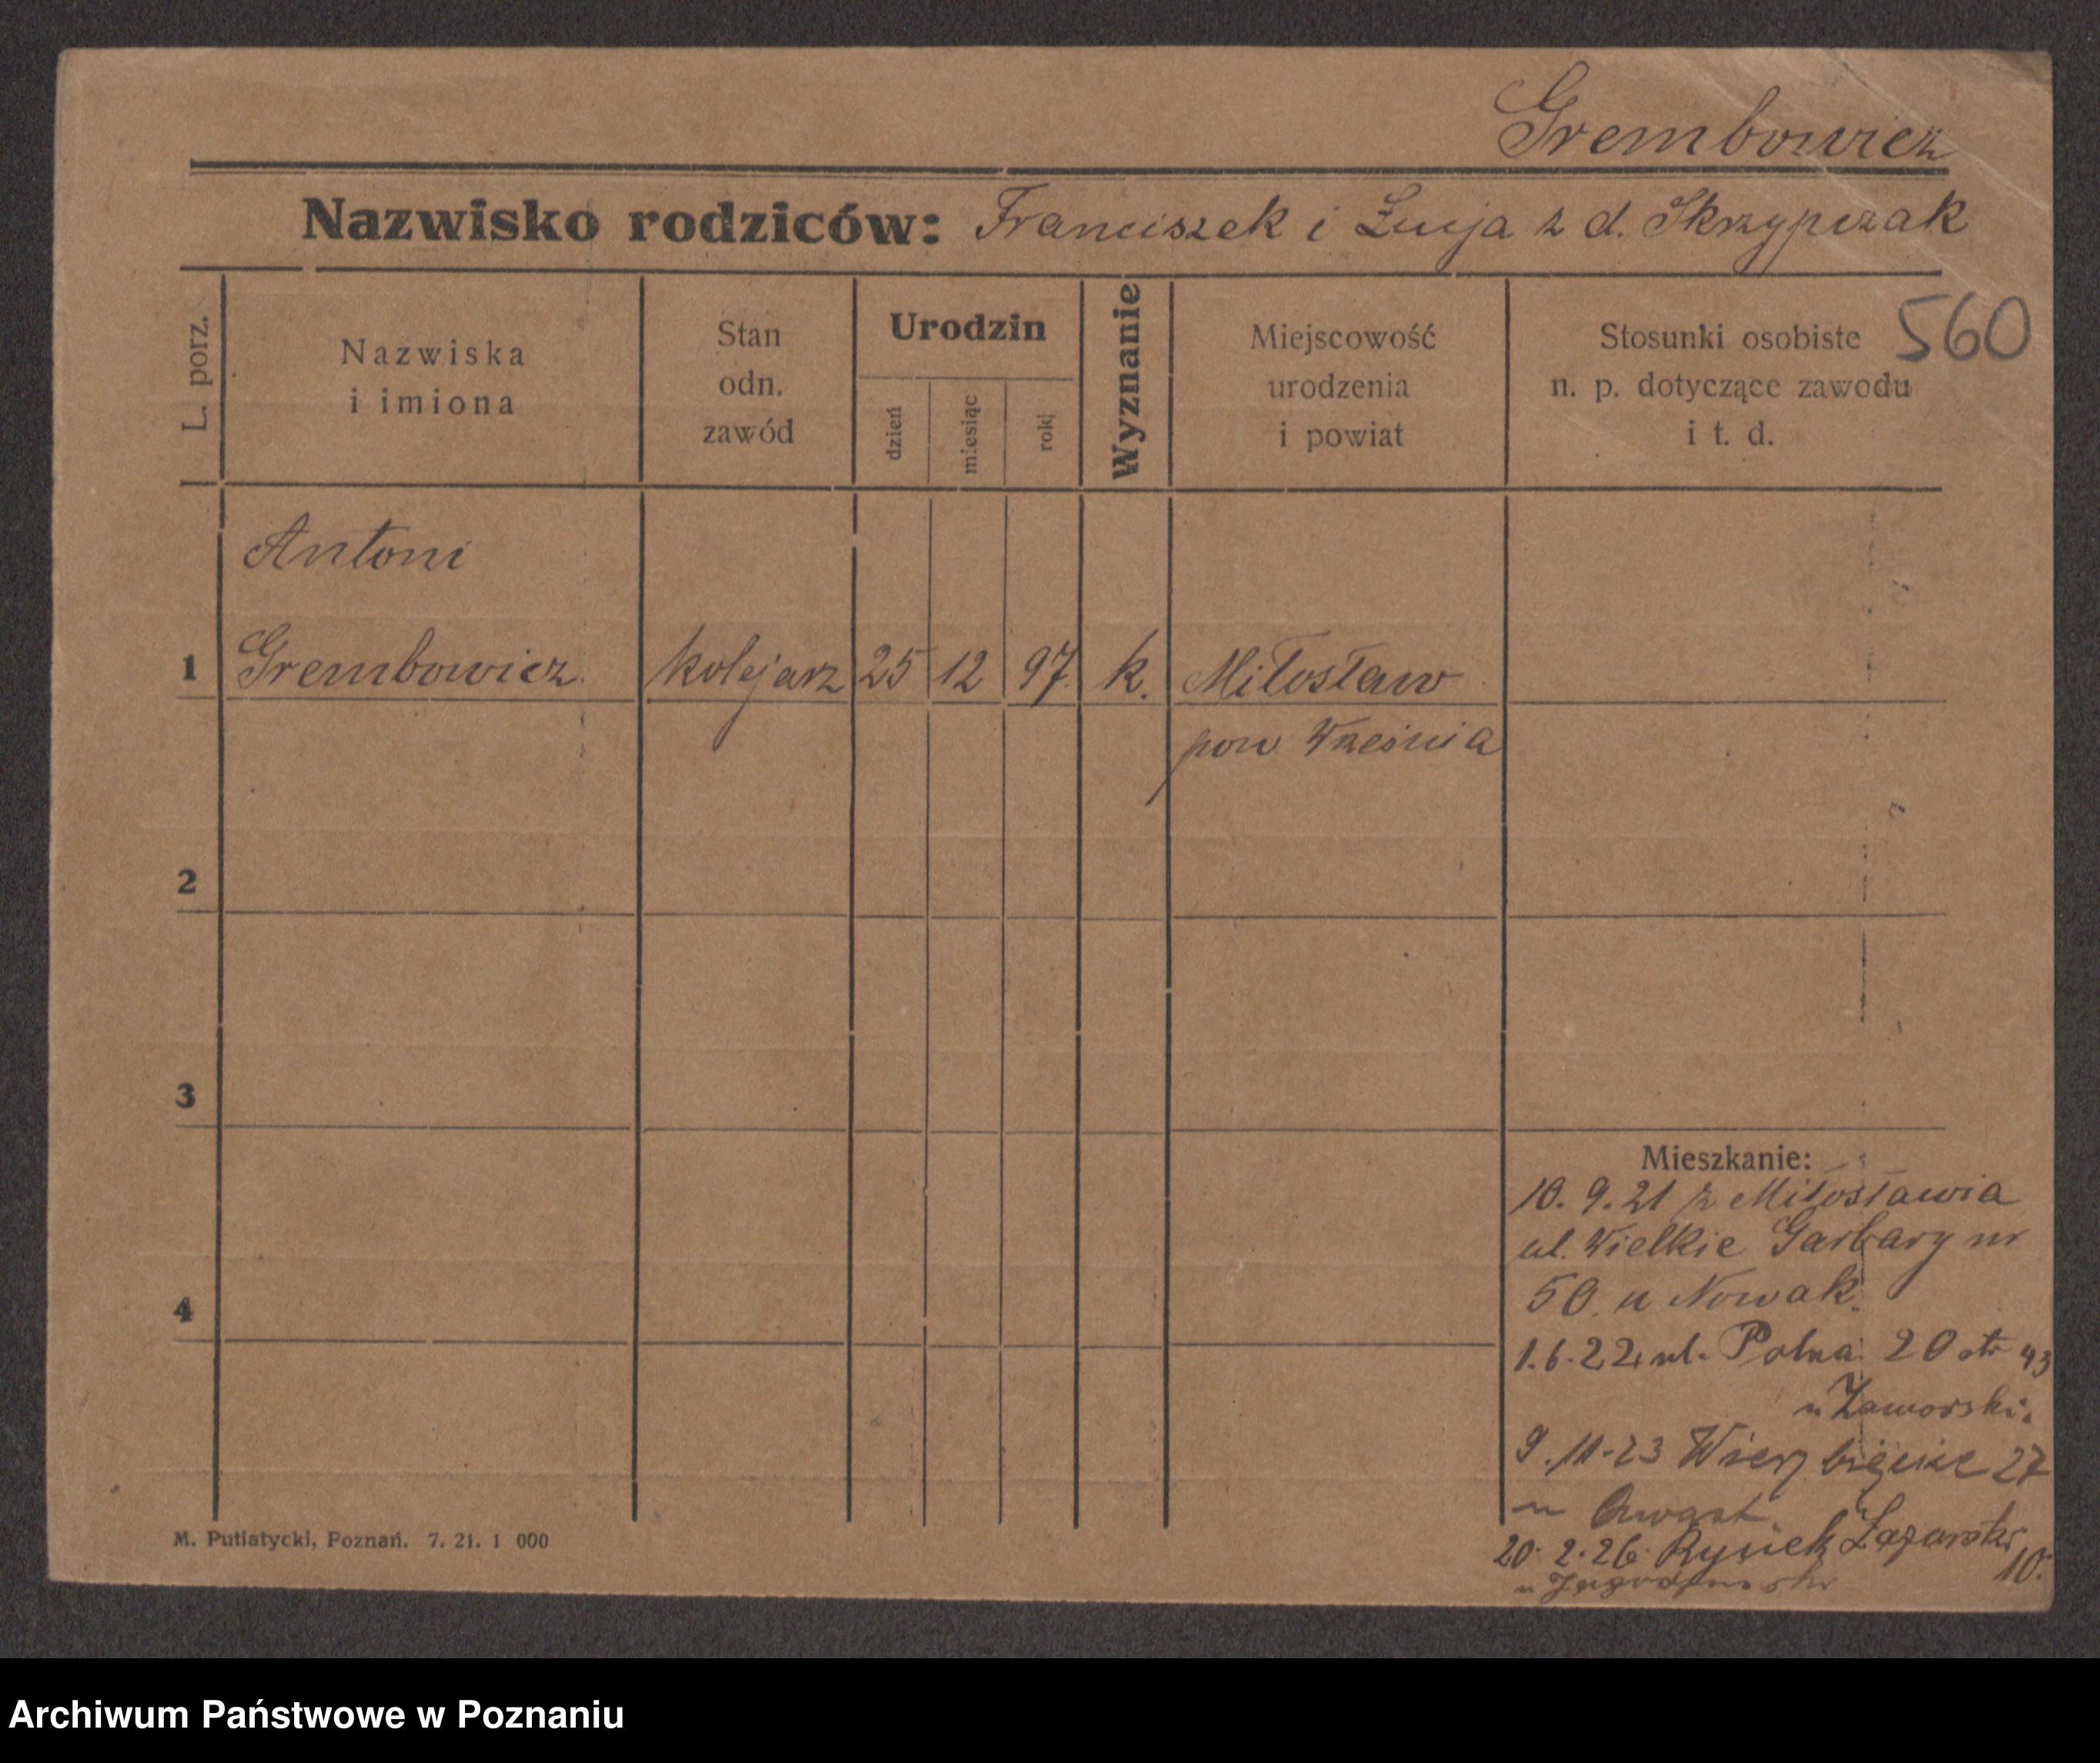 Grembowicz
Nazwisko rodziców: Franciszek i Łucja z d. Skrzypczak
560
L. porz.
Nazwiska
i imiona
Stan
odn.
zawód
Urodzin
dzień
miesiąc
rok
Wyznanie
Miejscowość
urodzenia
i powiat
Stosunki osobiste
n. p. dotyczące zawodu
i t. d.
Antoni
1 Grembowicz kolejarz 25 12 97. k. Miłosław
pow. Września
2
3
4
Mieszkanie:
10. 9. 21 z Miłosławia
ul. Wielkie Garbary nr
50. u Nowak.
1. 6. 22 ul. Polna 20 str 43
u Zaworski.
9. 11-23 Wierzbięcice 27
u
20. 2. 26. Rynek Łazarski
10.
u
M. Putiatycki, Poznań. 7. 21. 1 000
Archiwum Państwowe w Poznaniu